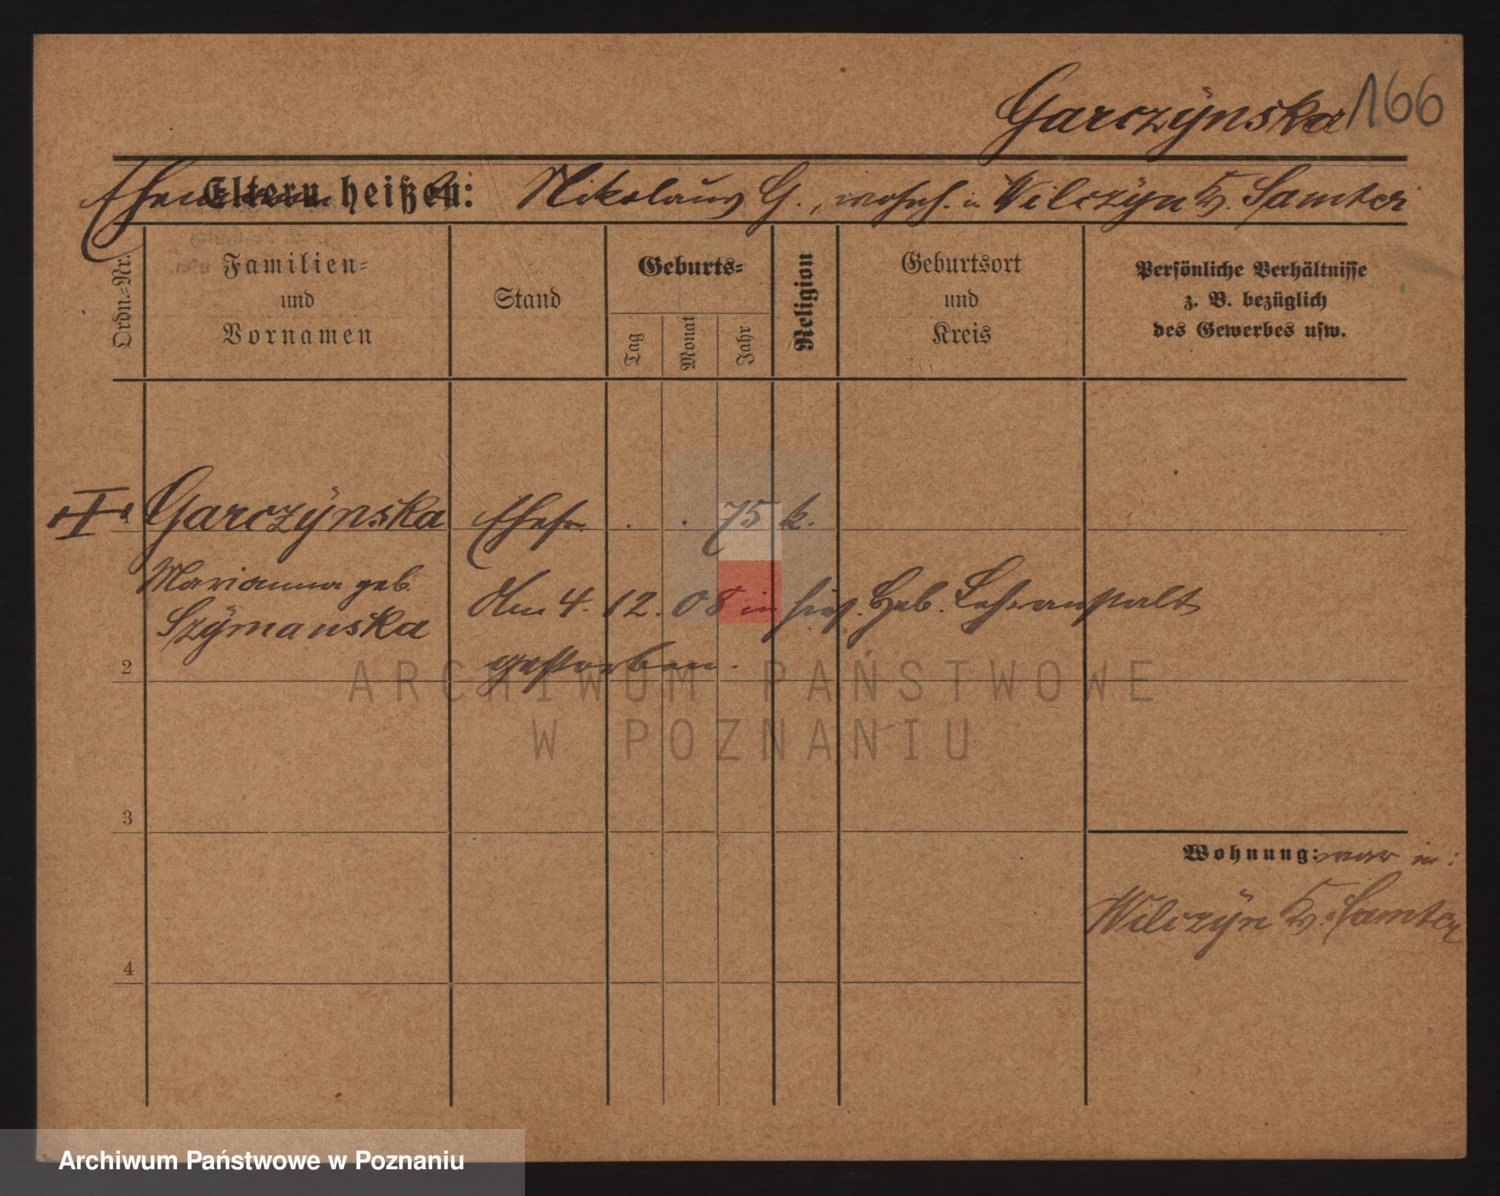 Garczÿnska 166
Ehemann Eltern heißen: Nikolaus G., wohnh. in Wilczÿn Kr. Samter
Ordn.-Nr.
Familien- und Vornamen
Stand
Geburts-
Tag
Monat
Jahr
Religion
Geburtsort und Kreis
Persönliche Verhältnisse
z. B. bezüglich
des Gewerbes usw.
1 Garczÿnska Ehefr. . . 75 k.
Marianna geb.
Szÿmanska
Am 4. 12. 08 in hies. Heb. Lehranstalt
gestorben.
2
ARCHIWUM PAŃSTWOWE
W POZNANIU
3
Wohnung: war in:
Wilczÿn Kr. Samter
4
Archiwum Państwowe w Poznaniu